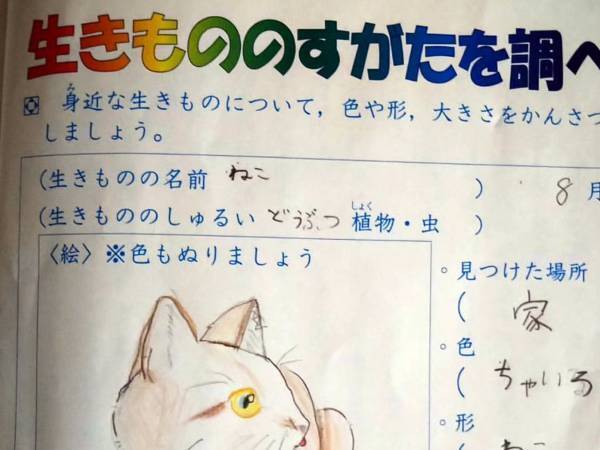 生きもののすがたを調べ
身近な生きものについて，色や形，大きさをかんさつ
しましょう。
（生きものの名前 ねこ ） 8月
（生きもののしゅるい どうぶつ 植物・虫 ）
〈絵〉※色もぬりましょう
。見つけた場所
（ 家
。色
（ ちゃいろ
。形